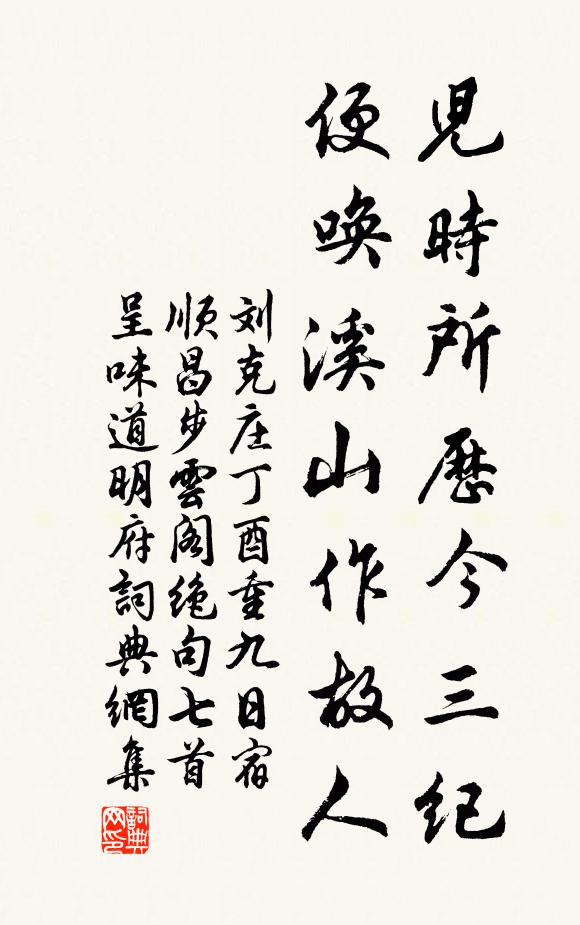 兒時所歷今三紀
便喚溪山作故人
刘克庄丁酉重九日宿
順昌步雲阁绝句七首
呈味道明府詞典網集
詞典
网印